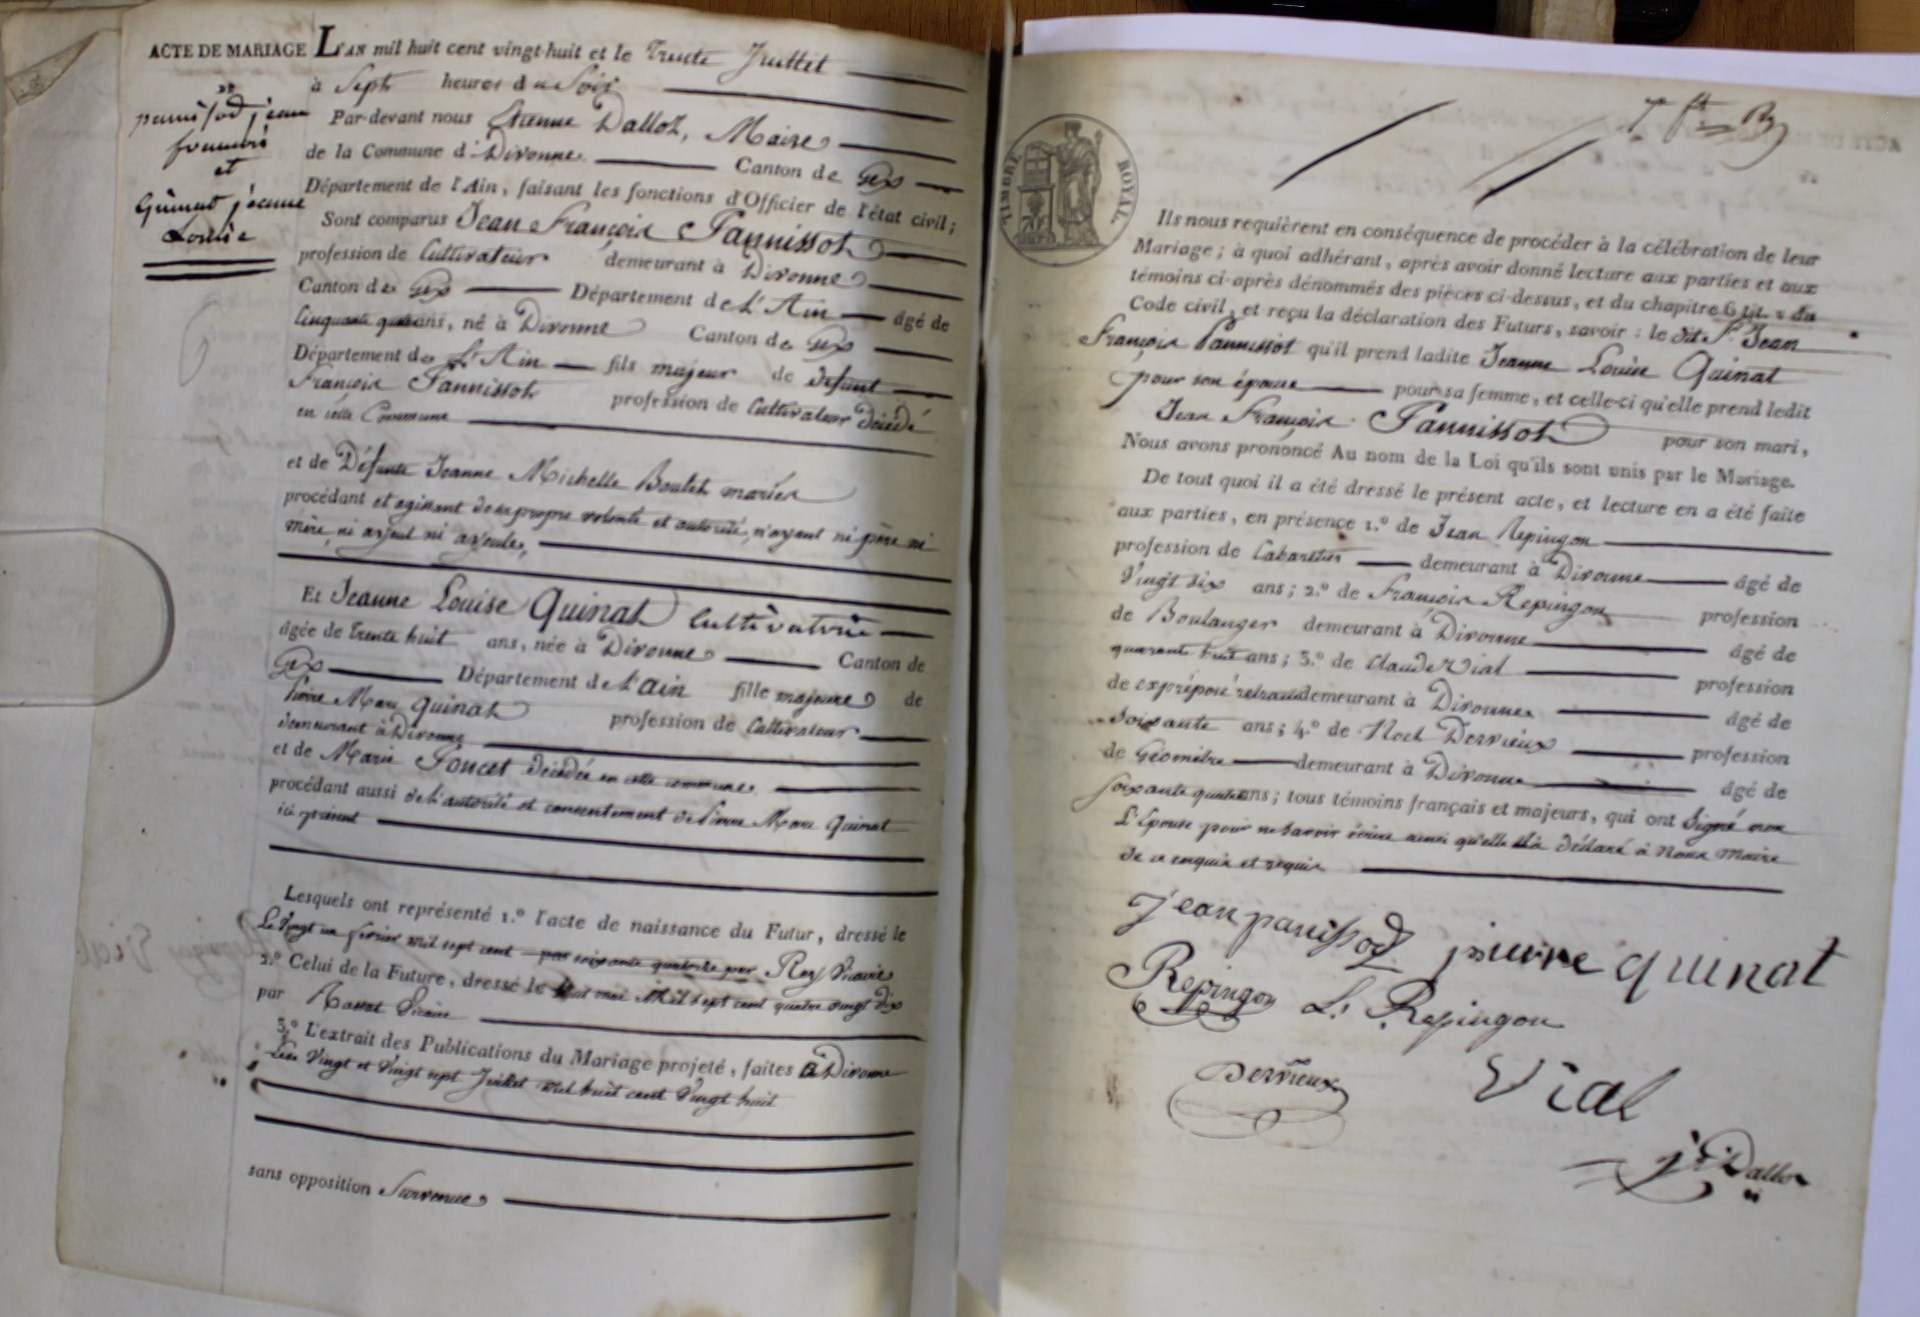 ACTE DE MARIAGE
DE
panissod jean
francois
et
Quinat jeanne
Louise
L'AN mil huit cent vingt-huit et le trente Juillet
à Sept heures du Soir
Par-devant nous Etienne Dalloz, Maire
de la Commune d Divonne Canton de Gex
Département de l'Ain, faisant les fonctions d'Officier de l'état civil;
Sont comparus Jean François Pannissot
profession de Cultivateur demeurant à Divonne
Canton de Gex Département de L'Ain âgé de
Cinquante quatre ans, né à Divonne Canton de Gex
Département de L'Ain fils majeur de defunt
François Pannissot profession de Cultivateur décédé
en cette Commune
et de Défunte Jeanne Michelle Boutet mariés
procédant et agissant de sa propre volonté et autorité, n'ayant ni père ni
mère, ni ayeul ni ayeule,
Et Jeanne Louise Quinat Cultivatrice
âgée de trente huit ans, née à Divonne Canton de
Gex Département de L'ain fille majeure de
Pierre Marc Quinat profession de Cultivateur
demeurant à Divonne
et de Marie Poncet décédée en cette commune
procédant aussi de l'autorité et consentement de Pierre Marc Quinat
ici présent
Lesquels ont représenté 1.º l'acte de naissance du Futur, dressé le
Le Vingt un février mil sept cent soixante quatorze par Rey Vicaire
2.º Celui de la Future, dressé le huit mai Mil sept cent quatre vingt dix
par Vicaire
3.º L'extrait des Publications du Mariage projeté, faites à Divonne
Les Vingt et Vingt sept Juillet mil huit cent Vingt huit
sans opposition Survenue
TIMBRE ROYAL
Ils nous requièrent en conséquence de procéder à la célébration de leur
Mariage; à quoi adhérant, après avoir donné lecture aux parties et aux
témoins ci-après dénommés des pièces ci-dessus, et du chapitre 6 tit. 5 du
Code civil, et reçu la déclaration des Futurs, savoir: le dit Sr. Jean
François Pannissot qu'il prend ladite Jeanne Louise Quinat
pour son épouse pour sa femme, et celle-ci qu'elle prend ledit
Jean François Pannissot pour son mari,
Nous avons prononcé Au nom de la Loi qu'ils sont unis par le Mariage.
De tout quoi il a été dressé le présent acte, et lecture en a été faite
aux parties, en présence 1.º de Jean Repingon
profession de Cabaretier demeurant à Divonne âgé de
Vingt six ans; 2.º de François Repingon profession
de Boulanger demeurant à Divonne âgé de
quarante huit ans; 3.º de Claude Vial profession
de expréposé retraité demeurant à Divonne âgé de
Soixante ans; 4.º de Noel Dervieux profession
de Géomètre demeurant à Divonne âgé de
soixante quatre ans; tous témoins français et majeurs, qui ont Signé non
L'Epouse pour ne savoir écrire ainsi qu'elle l'a déclaré à Nous Maire
de ce enquis et requis
jean panissod pierre quinat
Repingon Repingon
Dervieux Vial
Dalloz